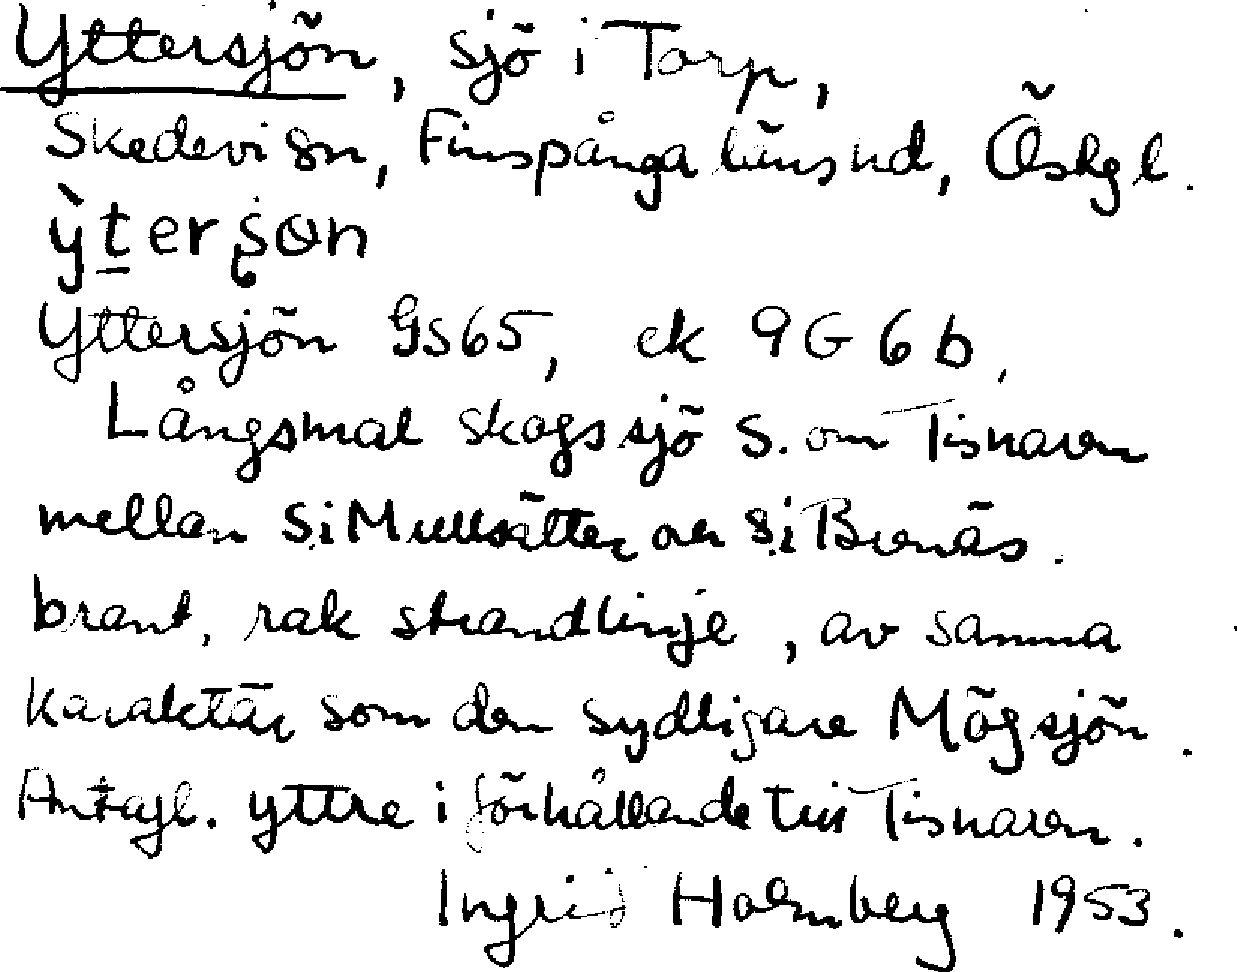 Yttersjön, sjö i Torp,
Skedevi sn, Finspånga läns hd, Östgl.
ỳterson
Yttersjön GS65, ek 9G6b,
Långsmal skogssjö S. om Tisnaren
mellan S: i Mullsätter och S: i Brenäs.
brant, rak strandlinje, av samma
karaktär som den sydligare Mögsjön.
Antagl. yttre i förhållande till Tisnaren.
Ingrid Holmberg 1953.